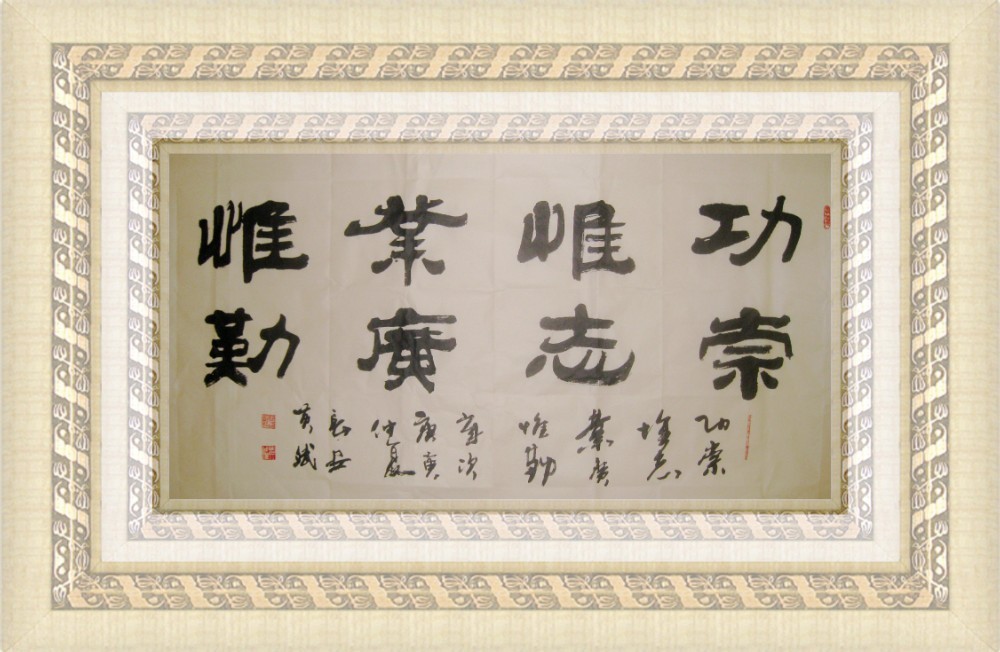 功崇
惟志
業廣
惟勤
功崇
惟志
業廣
惟勤
歲次
庚寅
仲夏
黃斌